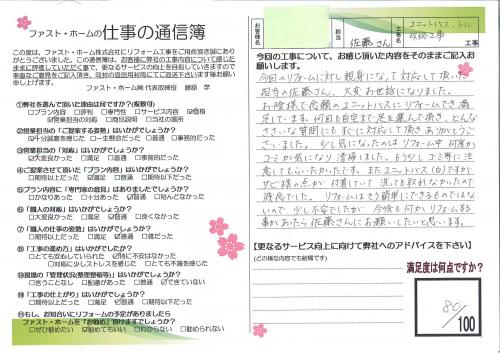 ファスト・ホームの仕事の通信簿
この度は、ファスト・ホーム株式会社にリフォーム工事をご用命頂き誠にあり
がとうございました。この通信簿は、お客様に弊社の工事内容について感じた
ままに評価していただく事で、更なるサービスの向上を目指していきますので
率直なご意見をご記入頂き、同封の返信用封筒にてご返送下さいます様お願い
申し上げます。
ファスト・ホーム㈱ 代表取締役 藤原 学
①弊社を選んで頂いた理由は何ですか?(複数可)
□プラン内容 □評判 □専門店 □サービス内容 ☑価格
☑営業担当の対応 □商品説明 □当社の運所
②営業担当の「ご提案する姿勢」はいかがでしょうか?
☑十分誠意を感じた □一生懸命だった □普通 □事務的だった
③営業担当の「対応」はいかがでしょうか?
☑大変良かった □満足 □普通 □事務的だった
④ご提案させて頂いた「プラン内容」はいかがでしょうか?
□期待以上だった □満足 ☑普通 □期待以下だった
⑤プラン内容に「専門家の意見」はありましたでしょうか?
□かなりあった □十分あった ☑普通 □殆んどなかった
⑥「職人の対応」はいかがでしょうか?
□大変良かった □満足 ☑普通 □良くなかった
⑦「職人の仕事の姿勢」はいかがでしょうか?
□期待以上だった □満足 ☑普通 □雑だった
⑧「工事の進め方」はいかがでしたか?
□とても安心できた ☑特に不安はなかった
□対応に少しストレスを感じた □とても不満を感じた
⑨現場の「管理状況(整理整頓等)」はいかがでしょうか?
□言うことなし □配慮があった ☑普通 □できていない
⑩「工事の仕上がり」はいかがでしょうか?
□期待以上だった □満足 ☑普通 □期待以下だった
⑪もし、お知合いにリフォームの予定がありましたら
ファスト・ホームを「お勧め」頂けますでしょうか?
□ぜひ勧めたい ☑勧めてもいい □わからない □勧められない
お客様名
担当
佐藤さん
工事名
ユニットバス、トイレ
改修工事
今回の工事について、お感じ頂いた内容をそのままご記入お
願いします。
今回のリフォームに対し親身になって対応して頂いた
担当の佐藤さん、大変お世話になりました。
お陰様で念願のユニットバスにリフォームでき満
足しています。何回も自宅まで足を運んで頂き、どんな
ささいな質問にもすぐに対応して頂きありがとうござ
いました。少し気になったのはリフォーム中何度か
ゴミが気になり清掃しました。もう少しゴミ等に注
意してもらいたかったです。またユニットバス(白)ですが
サビ様の点が付着していて洗っても取れなかったので
残念でした。リフォームはそう簡単にできるものではな
いので少し不安でしたが今後も何かリフォームする
事があったら佐藤さんにお願いしたいと思います。
【更なるサービス向上に向けて弊社へのアドバイスを下さい】
(どの様な内容でも結構です)
満足度は何点ですか?
80/100